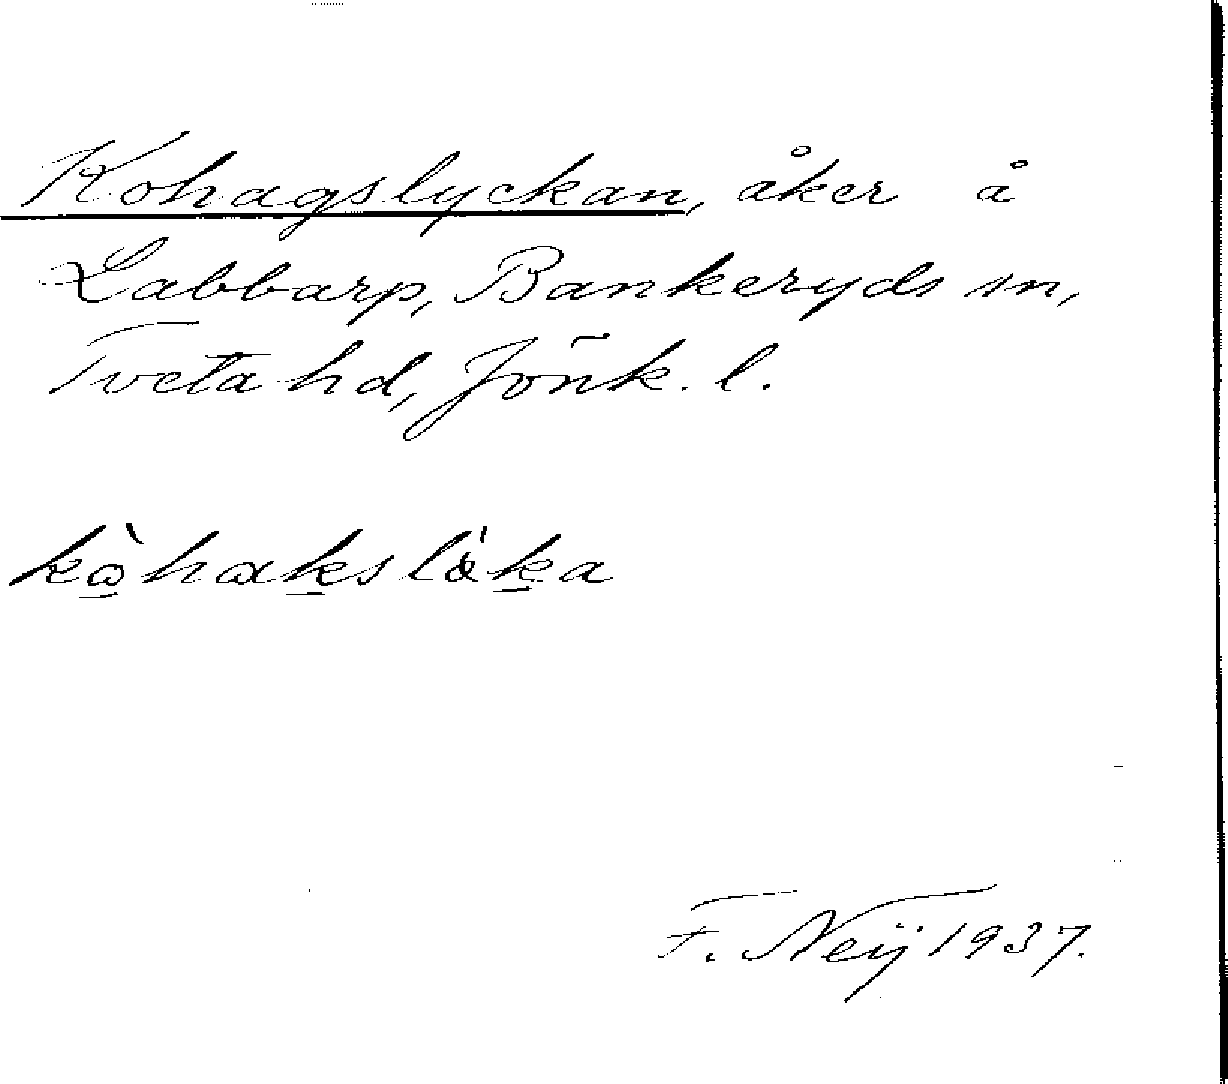 Kohagslyckan, åker å
Labbarp, Bankeryds sn,
Tveta hd, Jönk. l.
kòhakslö́ka
F. Neij 1937.